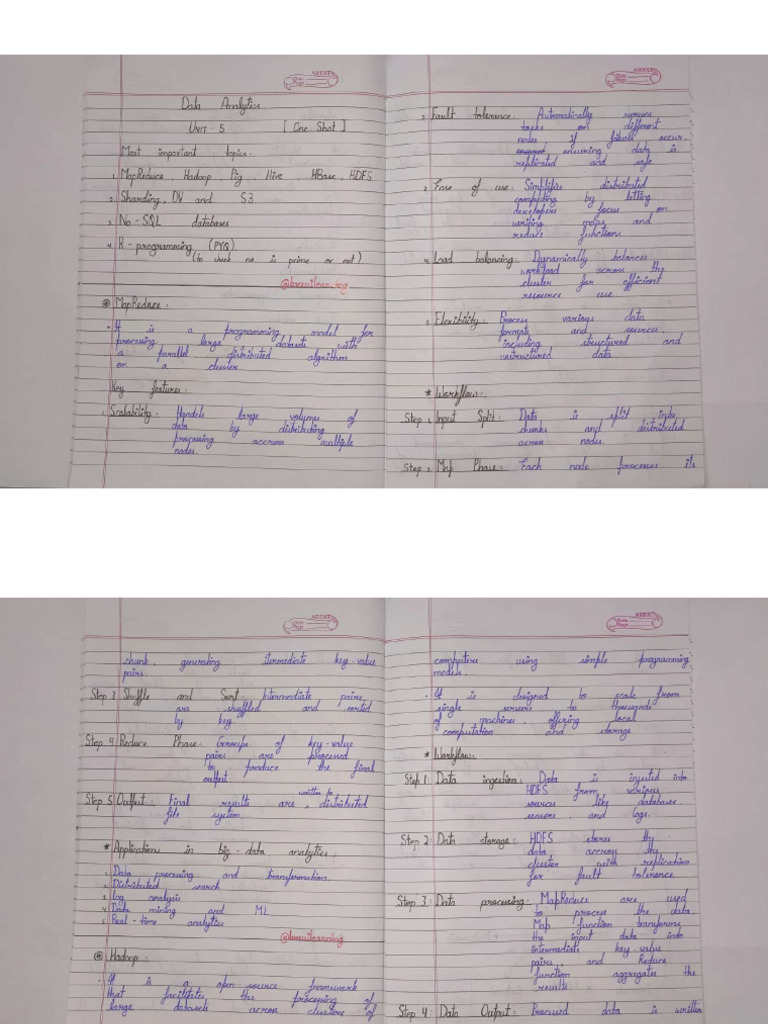 Data Analytics
UNIT - 5 [One Shot]
Most important topics.
1. MapReduce, Hadoop, Pig, Hive, HBase, HDFS
2. Sharding, DV and S3
3. No-SQL databases
4. R-programming (PYQ)
(to check no is prime or not)
MapReduce:
It is a programming model for
processing large datasets with
a parallel distributed algorithm
on a cluster
Key features:
1. Scalability: Handels large volumes of
data by distributing
processing accross multiple
nodes.
2. Fault tolerance: Automatically reruns
tasks on different
nodes if failure occur.
ensuring data is
replicated and safe
3. Ease of use: Simplifies distributed
computing by letting
developers focus on
writing maps and
reduce functions
4. Load balancing: Dynamically balances
workload across the
cluster for efficient
resource use
5. Flexibility: Process various data
format and sources,
including structured and
unstructured data
* Workflow:
Step 1. Input Split: Data is split into
chunks and distributed
across nodes.
Step 2 Map Phase: Each node processes its
chunk, generating itermediate key-value
pairs.
Step 3 Shuffle and Sort Intermediate pairs
are shuffled and sorted
by key
Step 4 Reduce Phase: Groups of key-value
pairs are processed
to produce the final
output
Step 5 Output: Final results are written to distributed
file system.
* Applications in big-data analytics:
1. Data processing and transformation.
2. Distributed search
3. log analysis
4. Data mining and ML
5. Real-time analytics
@brevilearning
Hadoop:
It is a open source framework
that facilitates the processing of
large datasets across clusters of
computers using simple programming
models.
It is designed to scale from
single servers to thousands
of machines, offering local
computation and storage
* Workflow:
Step 1: Data ingestion: Data is injested into
HDFS from various
sources like database,
sensors, and logs.
Step 2: Data storage: HDFS stores the
data accross the
cluster with replication
for fault tolerance
Step 3: Data processing: MapReduce are used
to process the data.
Map function transforms
the input data into
intermediate key-value
pairs, and Reduce
function aggregates the
results
Step 4: Data Output: Processed data is written